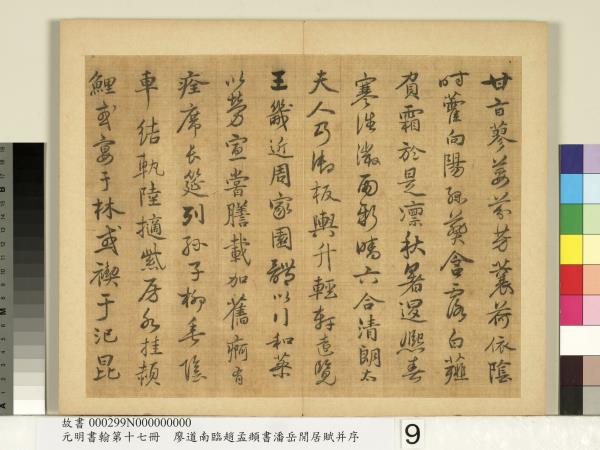 甘旨蓼荽芬芳蘘荷依陰
時藿向陽綠葵含露白薤
負霜於是凜秋暑退熙春
寒往微雨新晴六合清朗太
夫人乃御板輿升輕軒遠覽
王畿近周家園體以行和藥
以勞宣嘗膳載加舊痾有
痊席長筵列孫子柳垂陰
車結軌陸擿紫房水挂頳
鯉或宴于林或禊于汜昆
故書 000299N000000000
元明書翰第十七冊 廖道南臨趙孟頫書潘岳閒居賦并序
9